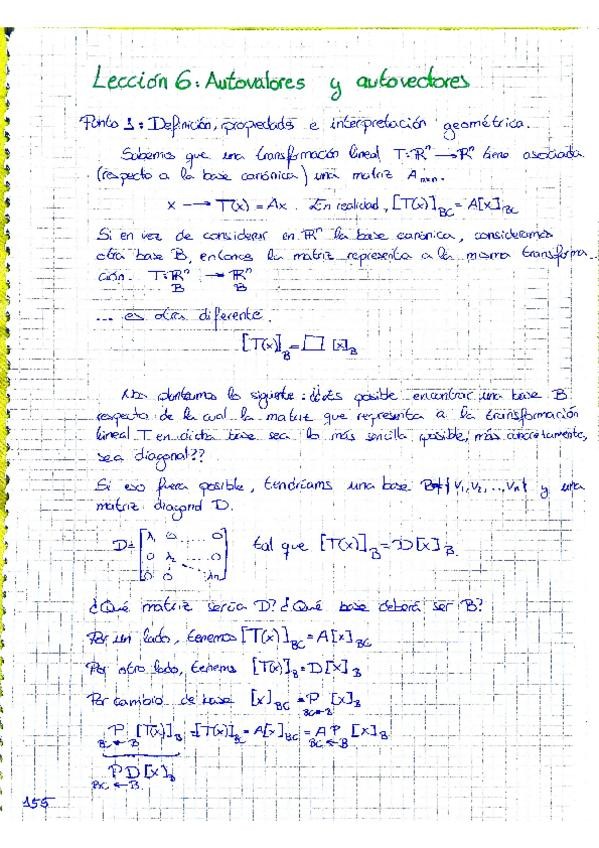 Lección 6: Autovalores y autovectores
Punto 1: Definición, propiedads e interpretación geométrica.
Sabemos que una transformación lineal T: ℝⁿ → ℝⁿ tiene asociada
(respecto a la base canónica) una matriz Aₙₓₙ.
x → T(x) = Ax. En realidad, [T(x)]BC = A[x]BC
Si en vez de considerar en ℝⁿ la base canónica, consideramos
otra base B, entonces la matriz representa a la misma transforma-
ción. T: ℝⁿ → ℝⁿ
B B
... es otra diferente.
[T(x)]B = □ [x]B
Nos planteamos lo siguiente: ¿¿es posible encontrar una base B
respecto de la cual la matriz que representa a la transformación
lineal T en dicha base sea lo más sencilla posible, más concretamente,
sea diagonal??
Si eso fuera posible, tendríams una base {V₁, V₂, ..., Vₙ} y una
matriz diagonal D.
D = [λ₁ 0 ... 0
0 λ₂ ... 0
0 0 ... λn] tal que [T(x)]B = D[x]B.
¿Qué matriz sería D? ¿Qué base deberá ser B?
Por un lado, tenemos [T(x)]BC = A[x]BC
Por otro lado, tenems [T(x)]B = D[x]B
Por cambio de base [x]BC = P [x]B
BC←B
P [T(x)]B = [T(x)]BC = A[x]BC = A P [x]B
BC←B BC←B
P D [x]B
BC←B
155